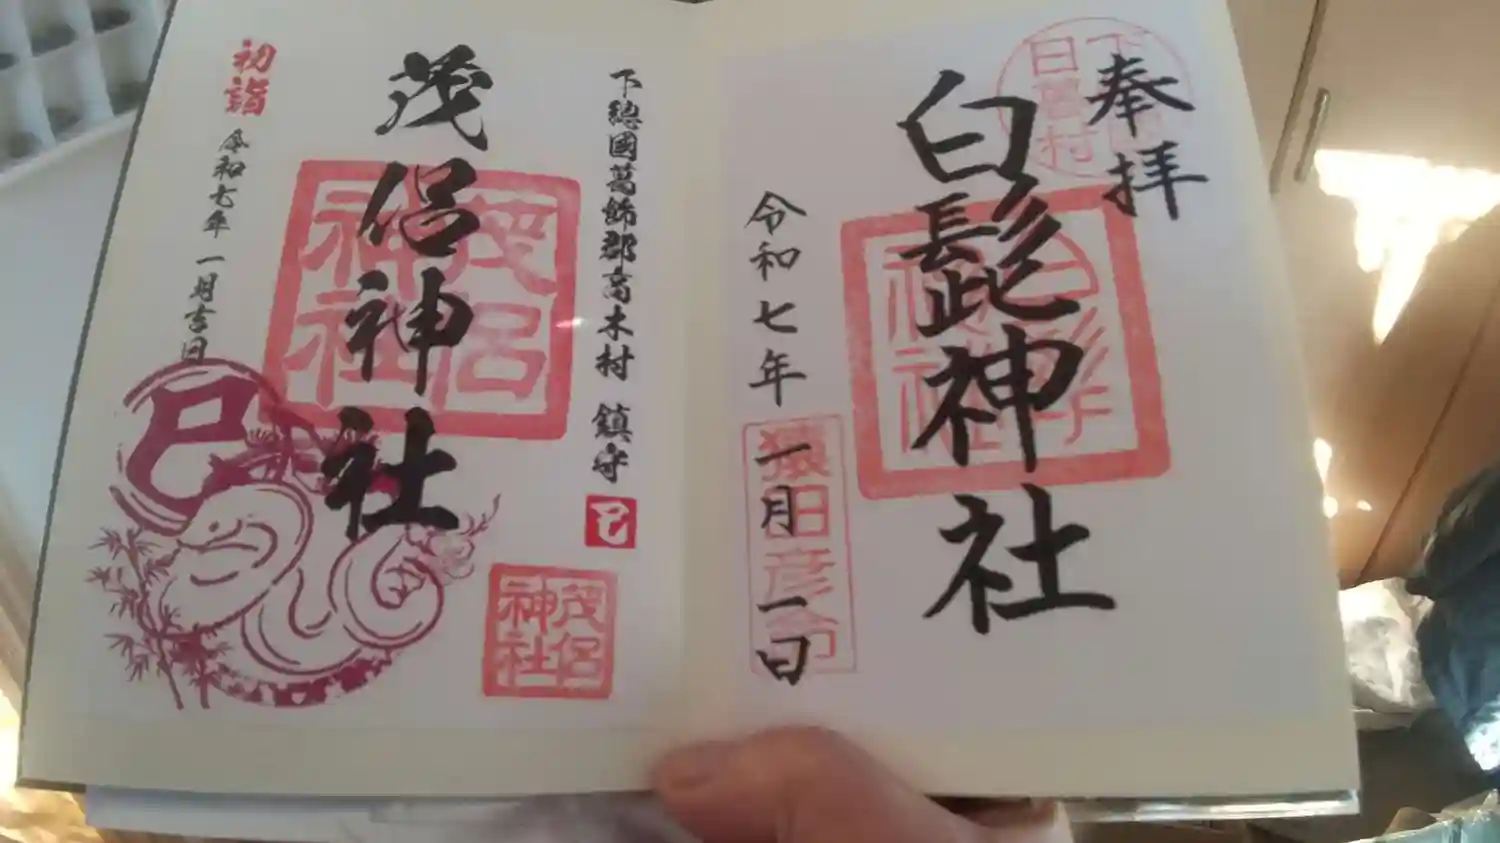 奉拝
白髭神社
令和七年一月一日
猿田彦命
下總國葛飾郡高木村 鎮守
巳
茂侶神社
茂侶神社
茂侶神社
初詣
令和七年 一月吉日
巳